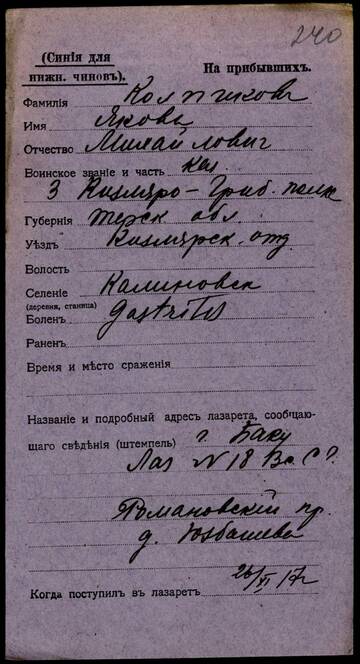 240
(Синія для
нижн. чиновъ).
На прибывшихъ.
Фамилія Колпиковъ
Имя Яковъ
Отчество Михайлович
Воинское званіе и часть каз.
3 Кизляро-Греб. полк
Губернія Терск обл.
Уѣздъ Кизлярск. отд
Волость
Селеніе Калиновск
(деревня, станица)
Боленъ gastritis
Раненъ
Время и мѣсто сраженія
Названіе и подробный адресъ лазарета, сообщаю-
щаго свѣдѣнія (штемпель) г. Баку
Лаз N 18 В. С. Г.
Романовскій пр.
д. Юзбашева
26/XI 17 г
Когда поступилъ въ лазаретъ